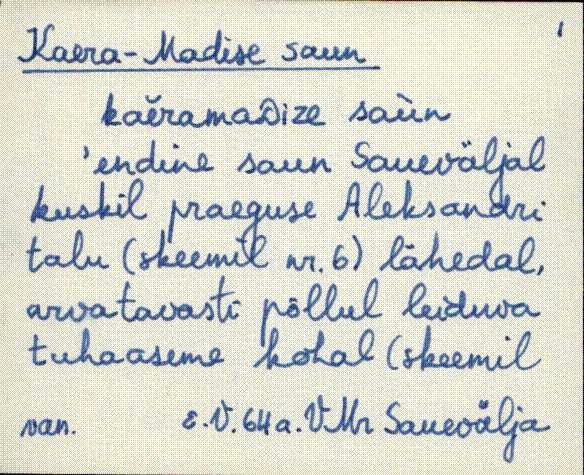 1
Kaera-Madise saun
kaĕramaDize saùn
'endine saun Saueväljal
kuskil praeguse Aleksandri
talu (skeemil nr. 6) lähedal,
arvatavasti põllul leiduva
tuhaaseme kohal (skeemil
van. E.V. 64 a. VMr Sauevälja